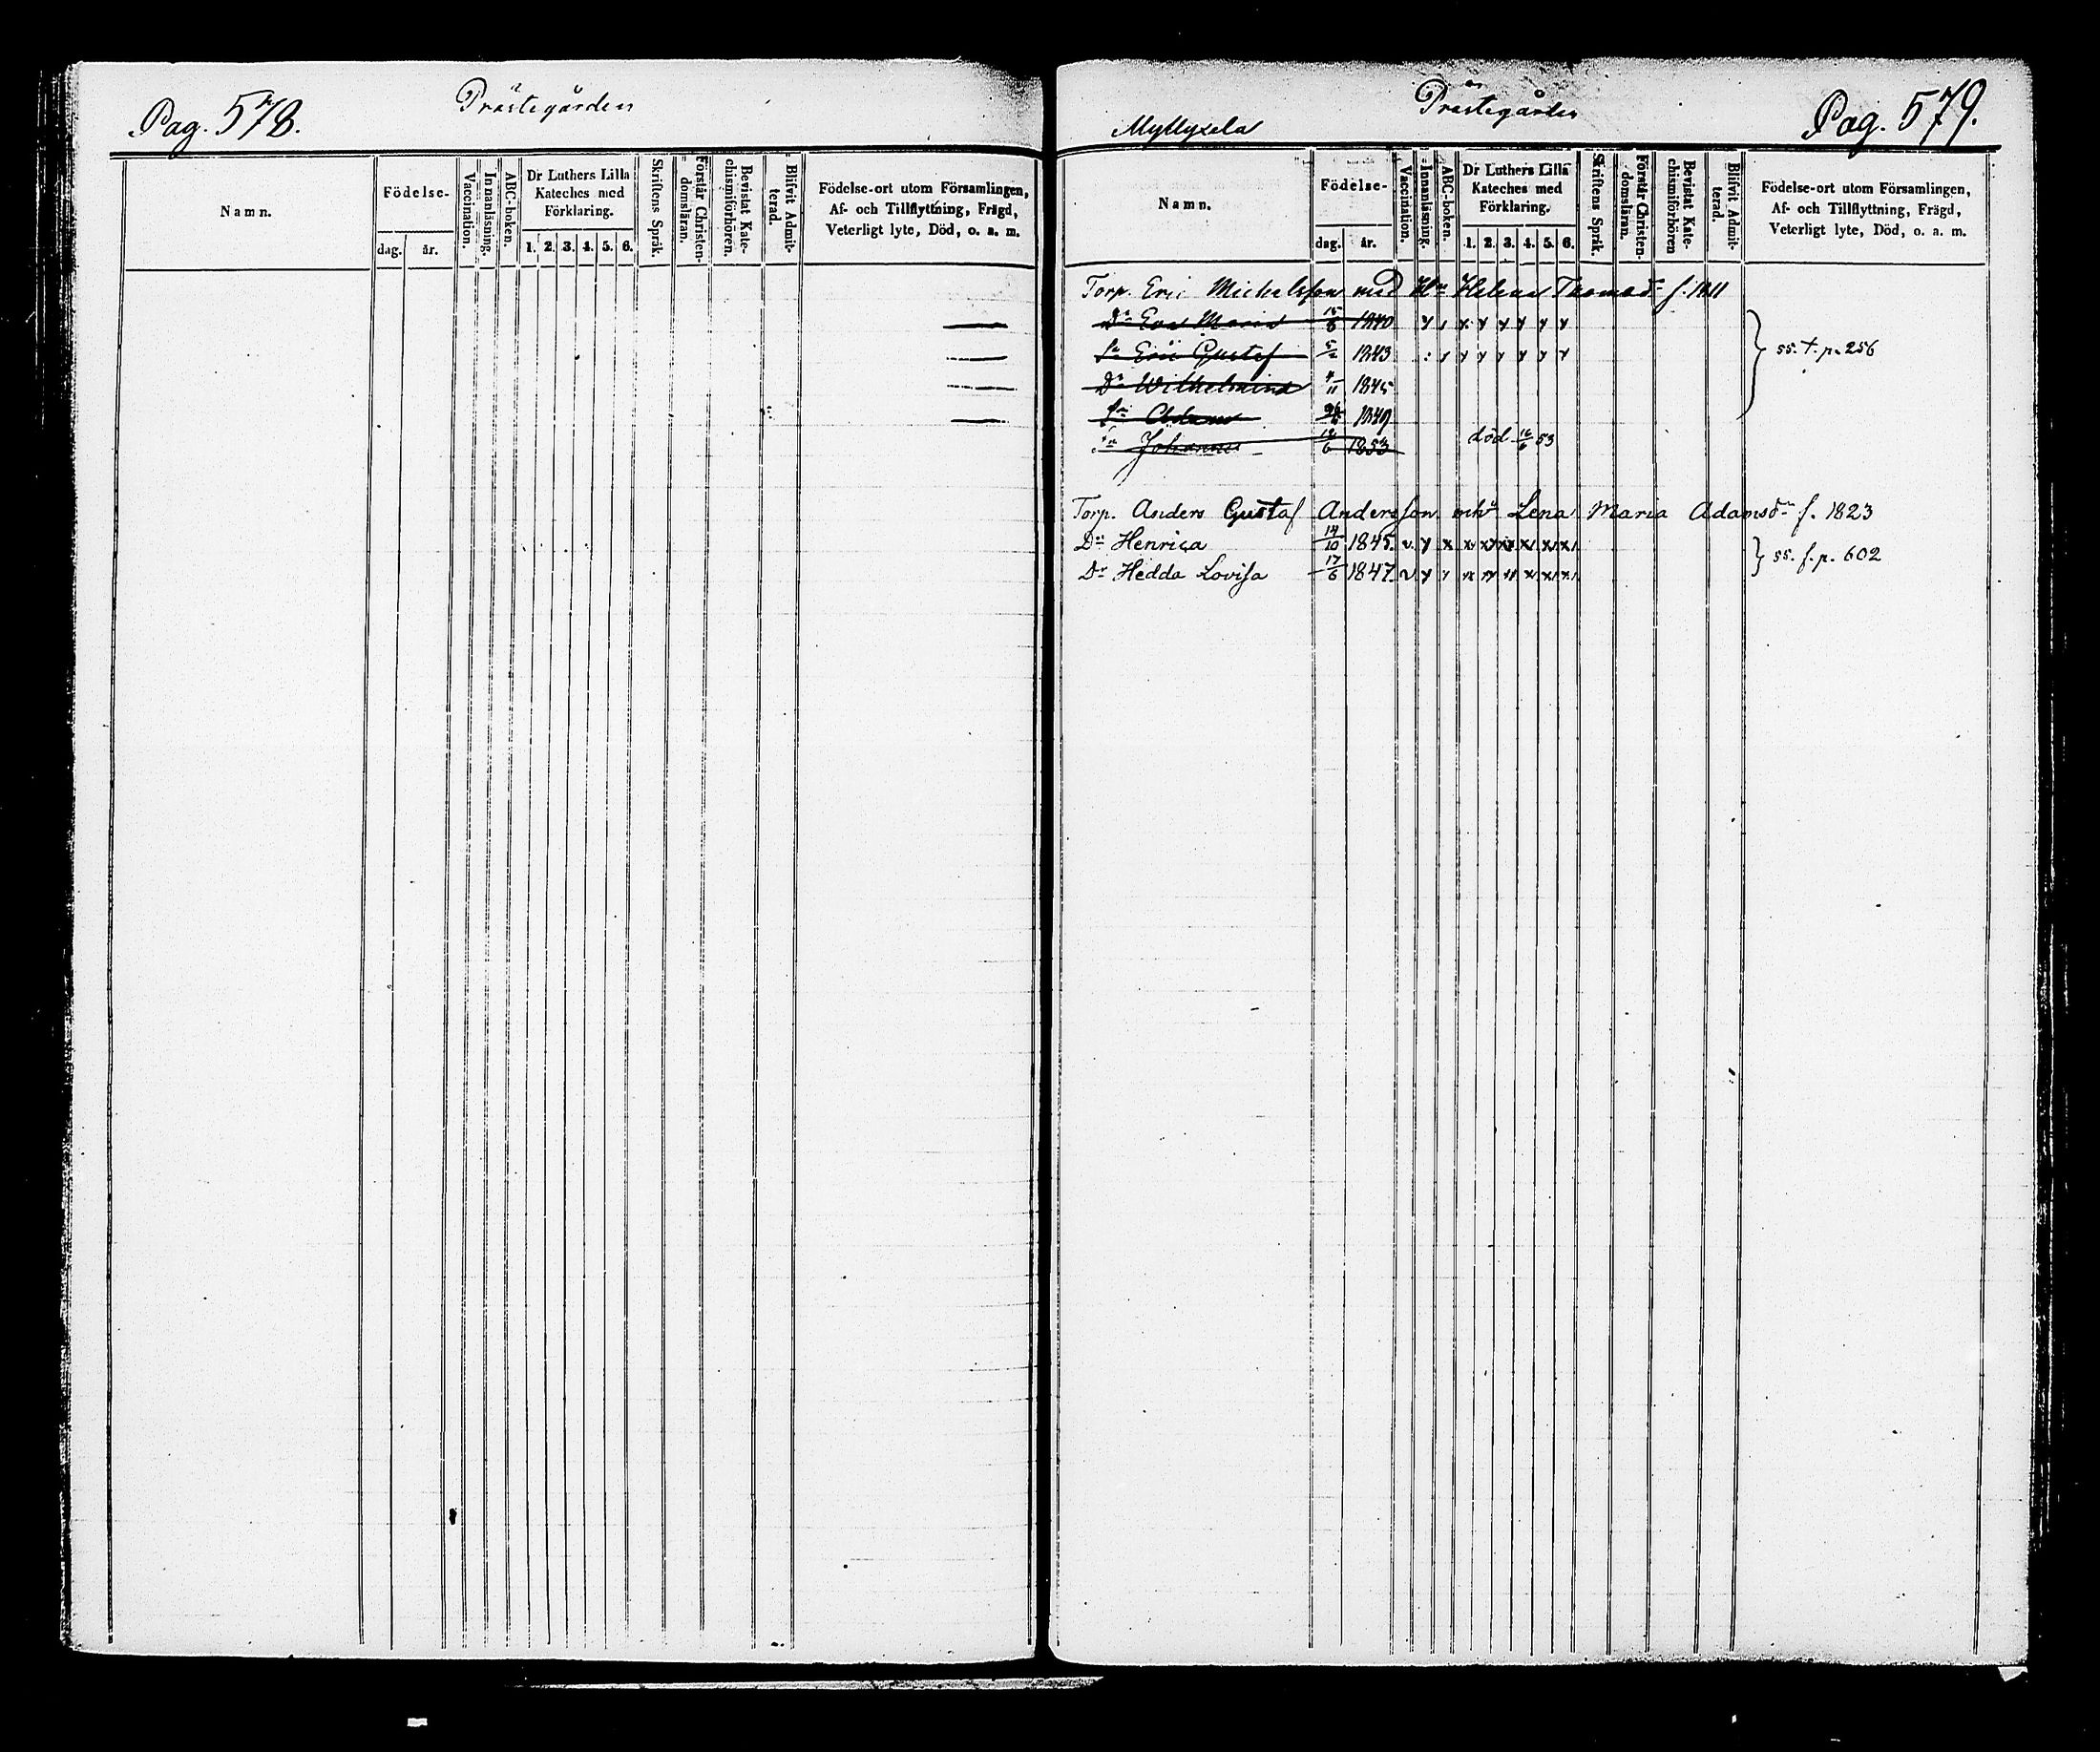 Pag. 578.
Prästegården
Namn.
Födelse-
dag. år.
Vaccination.
Innanläsning.
ABC-boken.
Dr Luthers Lilla
Kateches med
Förklaring.
1. 2. 3. 4. 5. 6.
Skriftens Språk.
Förstår Christen-
domsläran.
Bevistat Kate-
chismiförhören.
Blifvit Admit-
terad.
Födelse-ort utom Församlingen,
Af- och Tillflyttning, Frägd,
Veterligt lyte, Död, o. a. m.
Myllyxela
Prästegården
Pag. 579.
Namn.
Födelse-
dag. år.
Vaccination.
Innanläsning.
ABC-boken.
Dr Luthers Lilla
Kateches med
Förklaring.
1. 2. 3. 4. 5. 6.
Skriftens Språk.
Förstår Christen-
domsläran.
Bevistat Kate-
chismiförhören
Blifvit Admit-
terad.
Födelse-ort utom Församlingen,
Af- och Tillflyttning, Frägd,
Veterligt lyte, Död, o. a. m.
Torp. Eric Michelsson med Helena Thomasdr f. 1811
Dr Eva Maria 1840
Sn Eric Gustaf 1843
ss. f. p. 256
Dr Wilhelmina 1845
Sn Adam 1849
Sn Johannes 1853 död 16/6 53
Torp. Anders Gustaf Andersson och Lena Maria Adamsdr f. 1823
Dr Henrica 14/10 1845
Dr Hedda Lovisa 17/6 1847
ss. f. p. 602